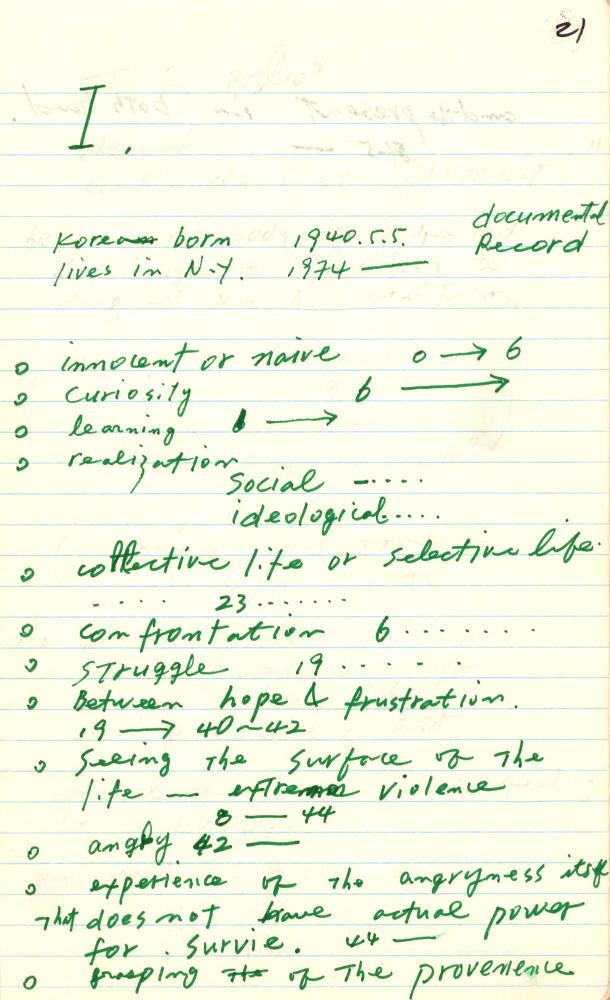 21
I.
documental
Korea born 1940.5.5. Record
lives in N.Y. 1974 —
o innocent or naive 0 → 6
o curiosity 6 →
o learning →
o realization
Social -....
ideological....
o collective life or selective life.
.... 23.......
o confrontation 6.......
o struggle 19.....
o Between hope & frustration.
19 → 40~42
o seeing the surface of the
life — extreme violence
8 — 44
o angry 42 —
o experience of the angryness itself
that does not have actual power
for . survie. 44 —
o grasping of the provenience